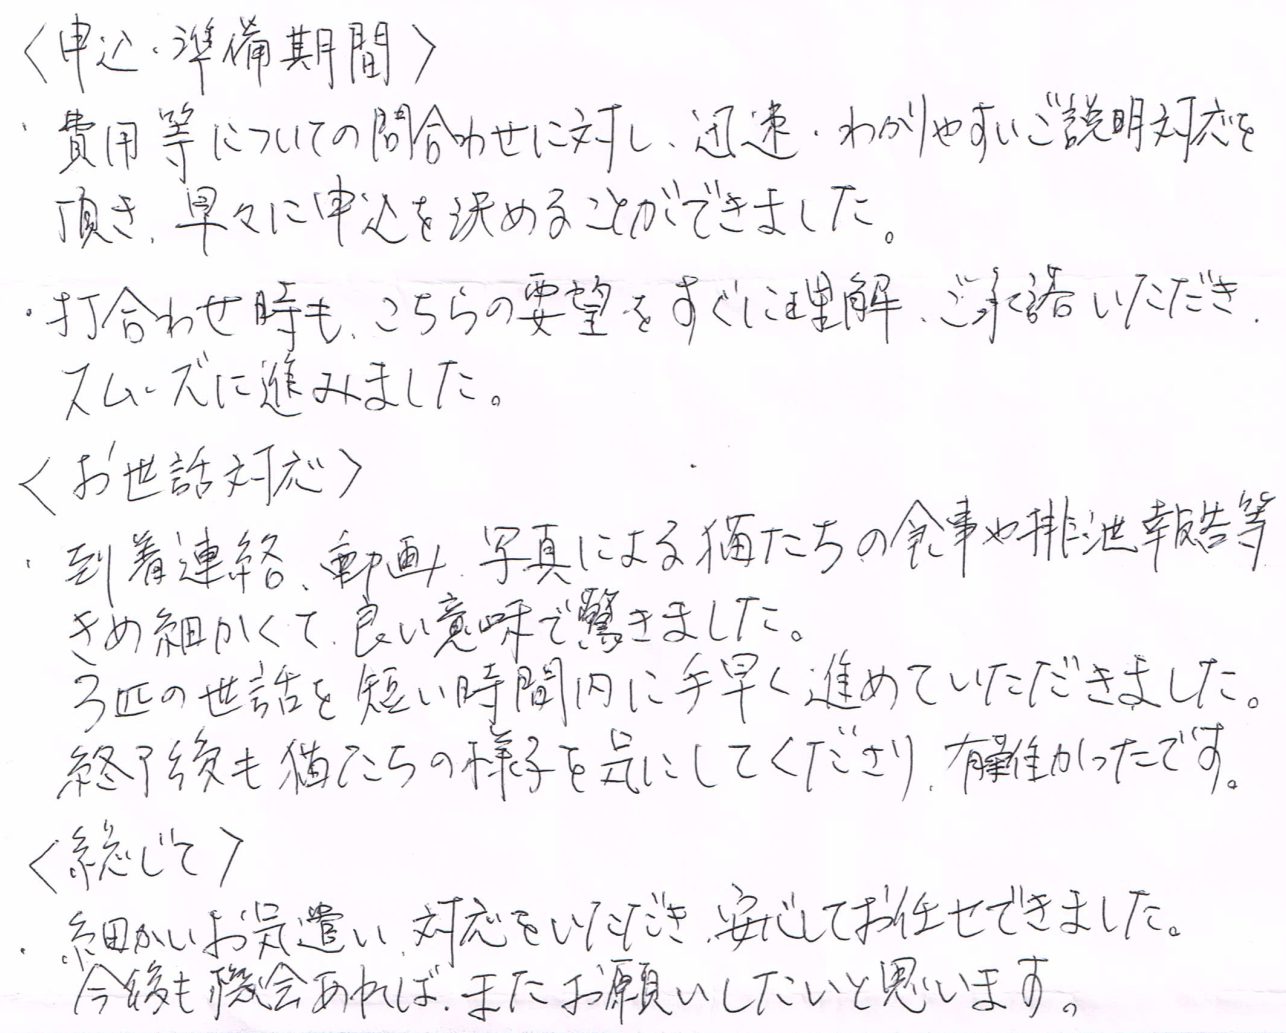 〈申込・準備期間〉
・費用等についての問合わせに対し、迅速・わかりやすいご説明対応を
頂き、早々に申込を決めることができました。
・打合わせ時も、こちらの要望をすぐに理解、ご承諾いただき、
スムーズに進みました。
〈お世話対応〉
・到着連絡、動画、写真による猫たちの食事や排泄報告等
きめ細かくて、良い意味で驚きました。
3匹の世話を短い時間内に手早く進めていただきました。
終了後も猫たちの様子を気にしてくださり、有難かったです。
〈総じて〉
・細かいお気遣い、対応をいただき、安心してお任せできました。
今後も機会あれば、またお願いしたいと思います。